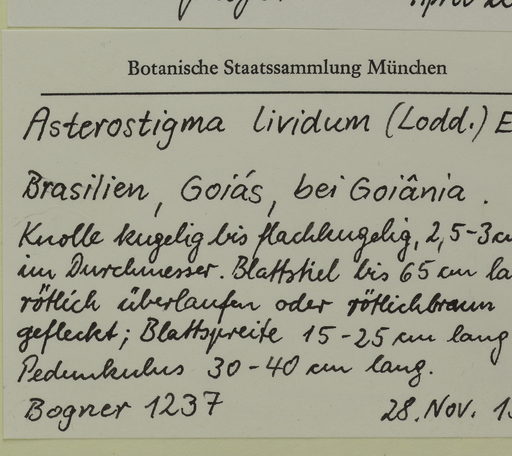 Botanische Staatssammlung München
Asterostigma lividum (Lodd.) E
Brasilien, Goiás, bei Goiânia.
Knolle kugelig bis flachkugelig, 2,5-3 cm
im Durchmesser. Blattstiel bis 65 cm la
rötlich überlaufen oder rötlichbraun
gefleckt; Blattspreite 15-25 cm lang
Pedunkulus 30-40 cm lang.
Bogner 1237 28. Nov. 1